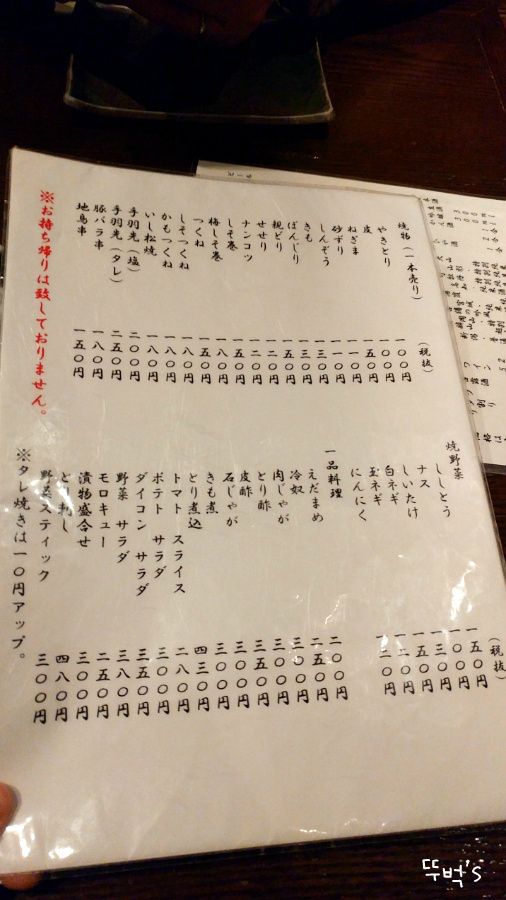 焼物（一本売り） （税抜）
やきとり 一〇〇円
皮 一〇〇円
ねぎま 一五〇円
砂ずり 一〇〇円
しんぞう 一〇〇円
きも 一三〇円
ぼんじり 一三〇円
親どり 一五〇円
せせり 一二〇円
ナンコツ 一二〇円
しそ巻 一二〇円
梅しそ巻 一五〇円
つくね 一五〇円
しそつくね 一八〇円
かもつくね 一八〇円
いし松焼 一八〇円
手羽先（塩） 二〇〇円
手羽先（タレ） 二五〇円
豚バラ串 一八〇円
地鳥串 一五〇円
※お持ち帰りは致しておりません。
焼野菜 （税抜）
ししとう 一五〇円
ナス 一〇〇円
しいたけ 一三〇円
白ネギ 一五〇円
玉ネギ 一二〇円
にんにく 一二〇円
一品料理
えだまめ 二〇〇円
冷奴 二五〇円
肉じゃが 三〇〇円
とり酢 三〇〇円
皮酢 三五〇円
石じゃが 三〇〇円
きも煮 三〇〇円
とり煮込 四三〇円
トマト スライス 二八〇円
ポテト サラダ 三〇〇円
ダイコン サラダ 三五〇円
野菜 サラダ 三八〇円
モロキュー 二五〇円
漬物盛合せ 三〇〇円
とり刺し 四八〇円
野菜スティック 三〇〇円
※タレ焼きは一〇円アップ。
뚜벅's